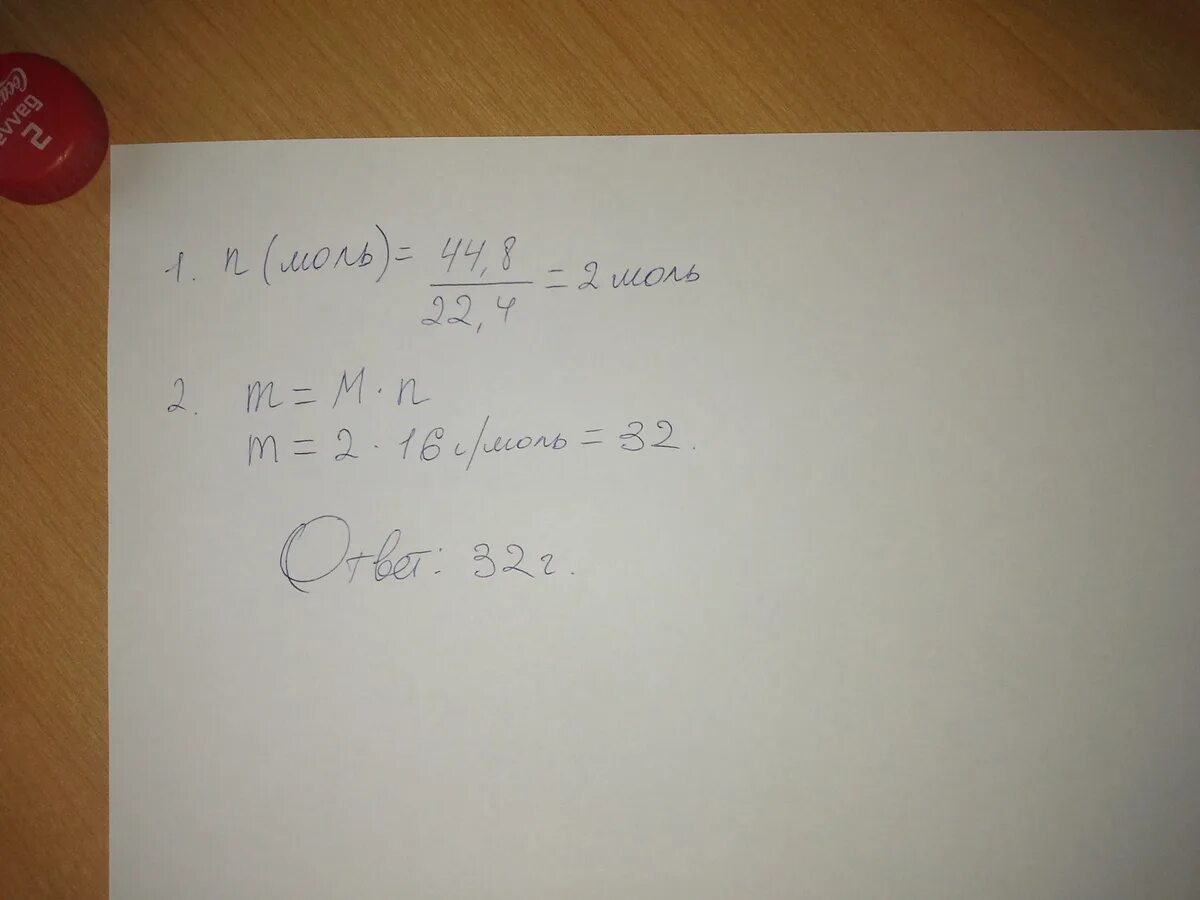 Coca
балла
2
1. n (моль) = 44,8 / 22,4 = 2 моль
2. m = M · n
m = 2 · 16 г/моль = 32.
Ответ: 32 г.